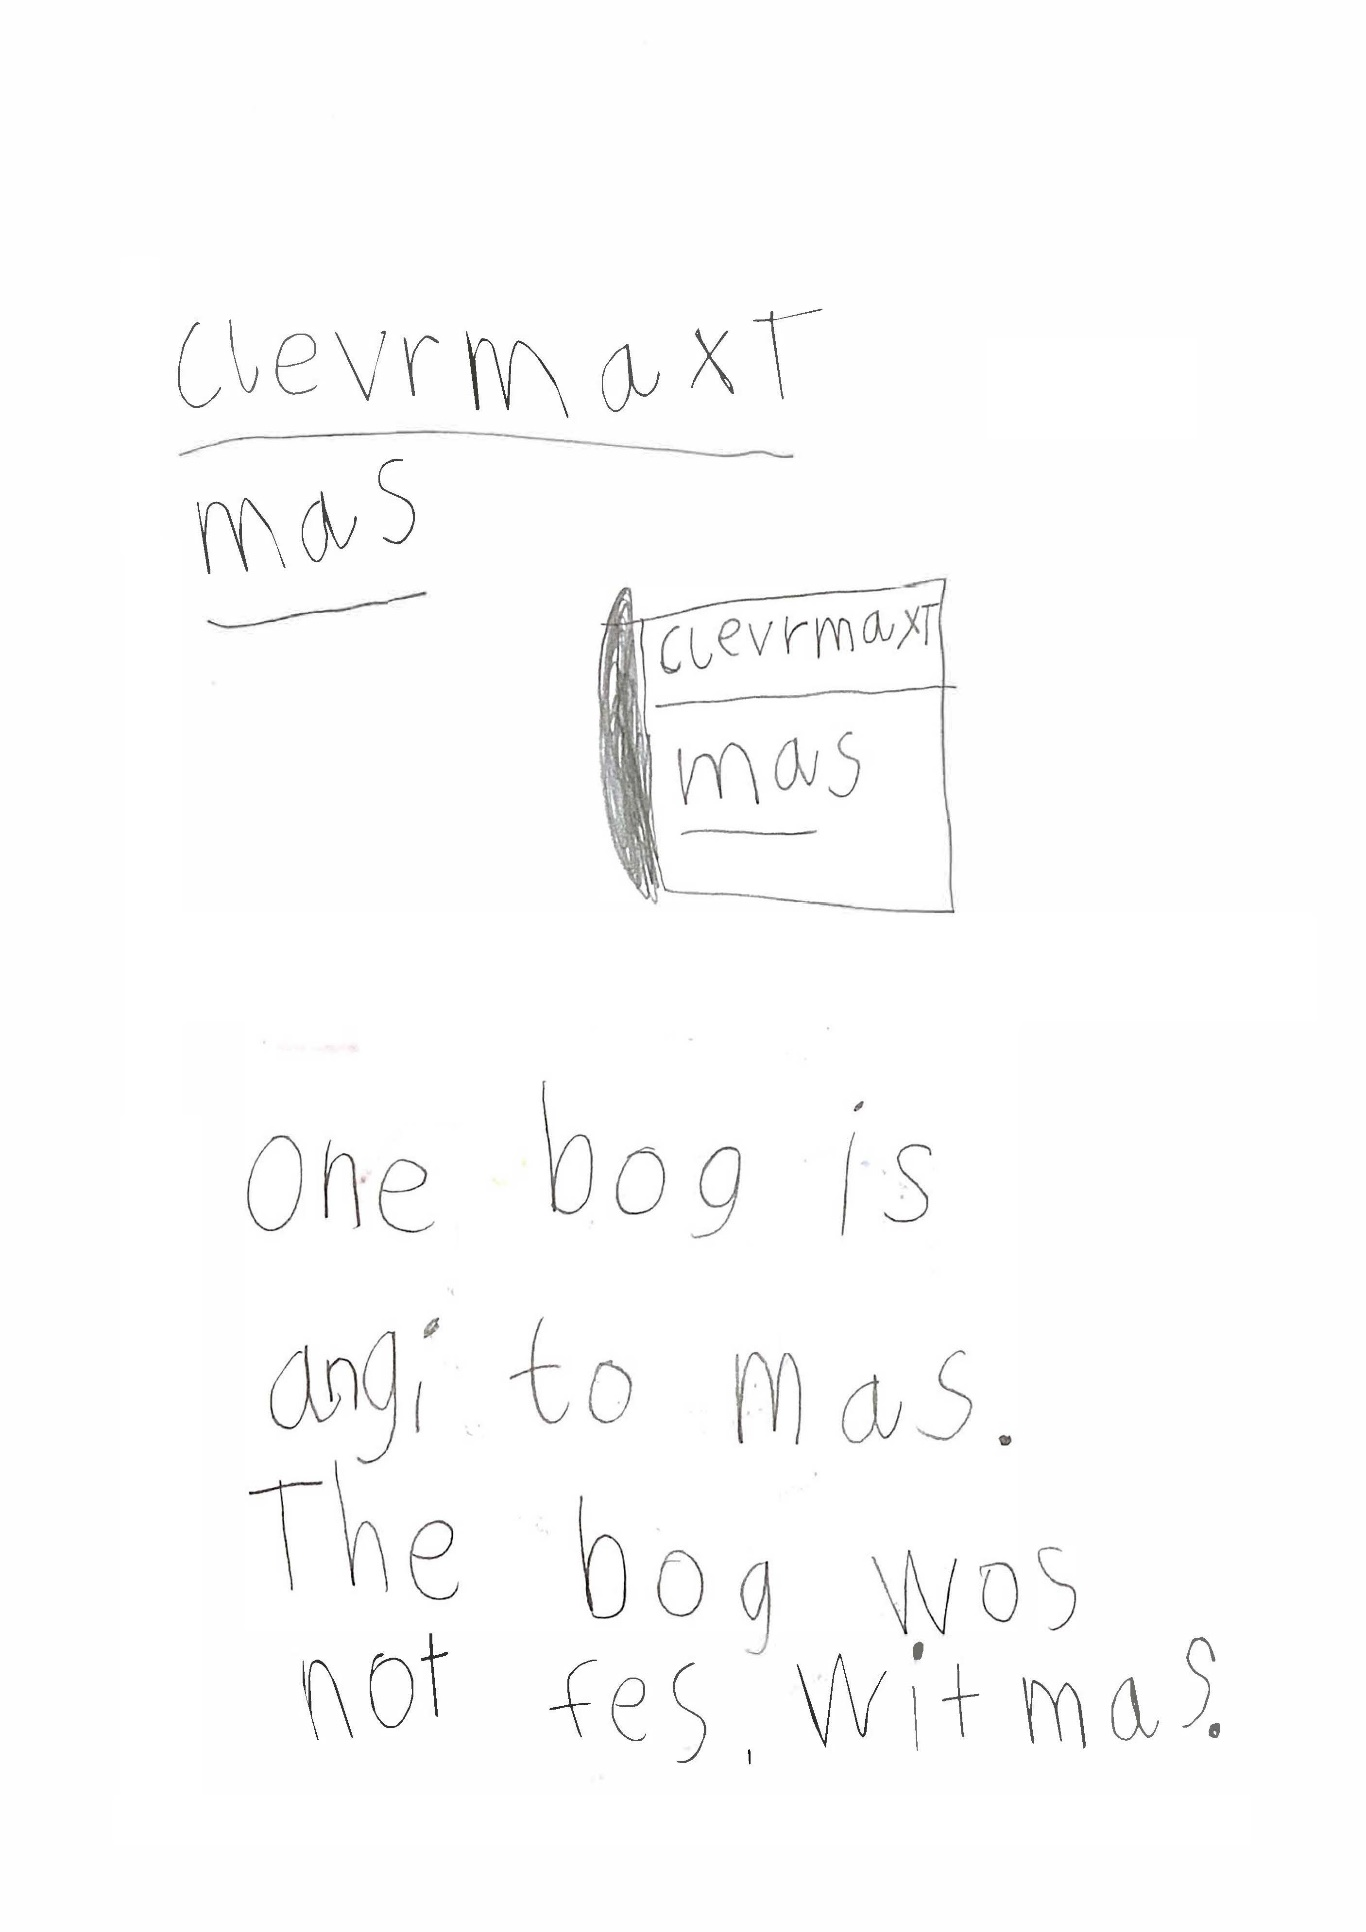 clevrmaxT
mas
clevrmaxT
mas
one bog is
angi to mas.
The bog wos
not fes. wit mas.